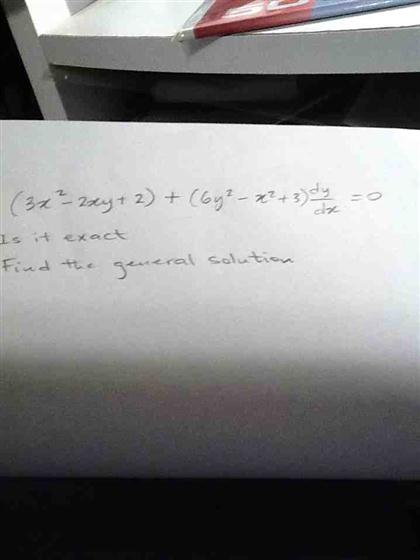 (3x² - 2xy + 2) + (6y² - x² + 3) dy/dx = 0
Is it exact
Find the general solution